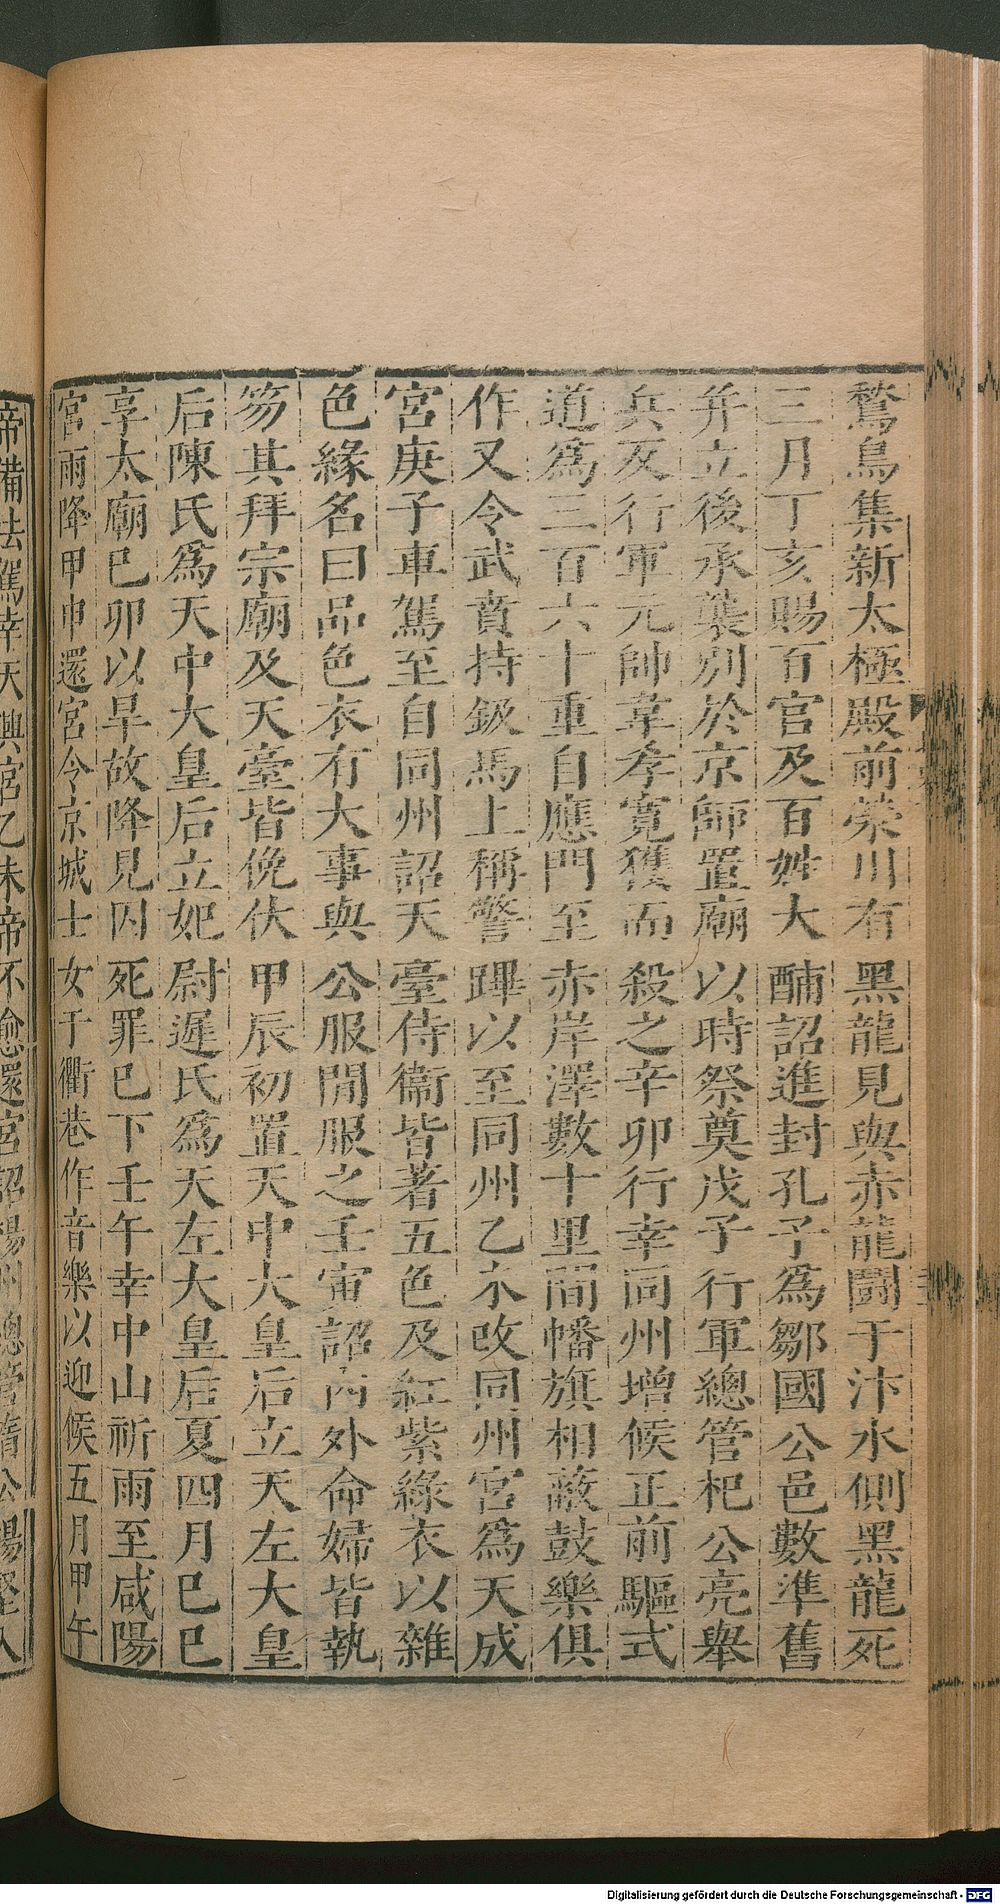 鶖鳥集新太極殿前滎川有黑龍見與赤龍鬭于汴水側黑龍死
三月丁亥賜百官及百姓大酺詔進封孔子為鄒國公邑數準舊
并立後承襲別於京師置廟以時祭奠戊子行軍總管杞公亮舉
兵反行軍元帥韋孝寬獲而殺之辛卯行幸同州增候正前驅式
道爲三百六十重自應門至赤岸澤數十里間幡旗相蔽鼓樂俱
作又令武賁持鈒馬上稱警蹕以至同州乙未改同州宮爲天成
宮庚子車駕至自同州詔天臺侍衞皆著五色及紅紫綠衣以雜
色緣名曰品色衣有大事與公服間服之壬寅詔內外命婦皆執
笏其拜宗廟及天臺皆俛伏甲辰初置天中大皇后立天左大皇
后陳氏爲天中大皇后立妃尉遲氏爲天左大皇后夏四月己巳
享太廟己卯以旱故降見囚死罪已下壬午幸中山祈雨至咸陽
宮雨降甲申還宮令京城士女于衢巷作音樂以迎候五月甲午
帝備法駕幸天興宮乙未帝不愈還宮詔揚州總管隋公楊堅入
Digitalisierung gefördert durch die Deutsche Forschungsgemeinschaft - DFG